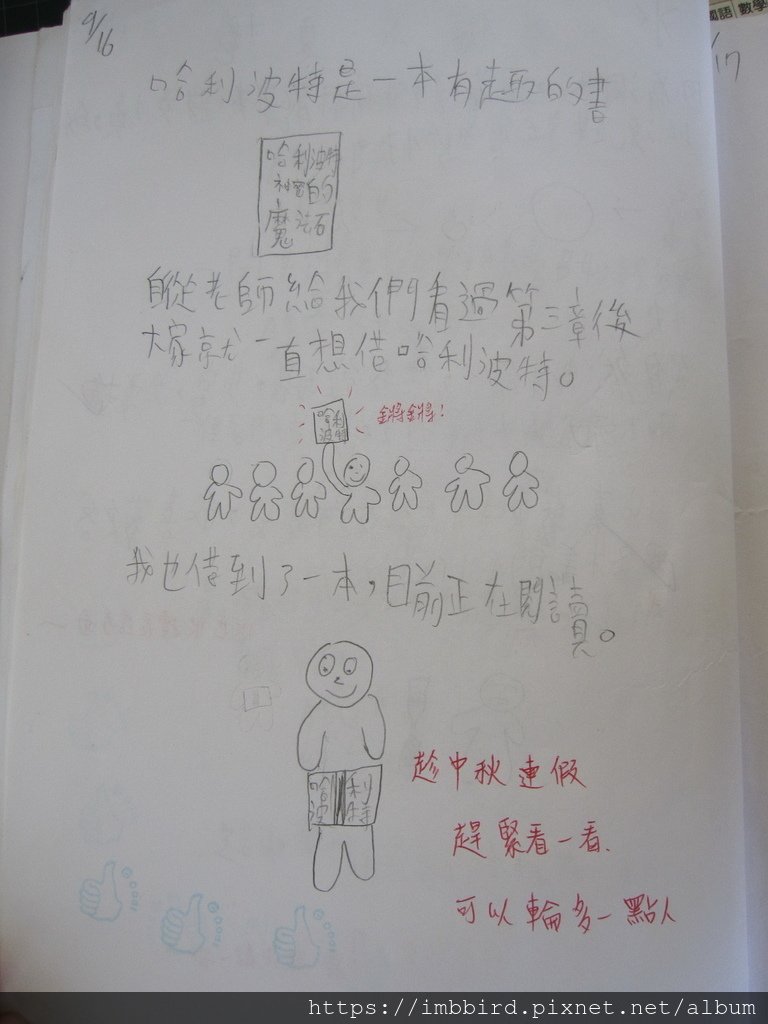 9/16
哈利波特是一本有趣的書
哈利波特
神密的
魔法石
自從老師給我們看過第三章後
大家就一直想借哈利波特。
哈利
波特
鏘鏘!
我也借到了一本,目前正在閱讀。
哈利
波特
趁中秋連假
趕緊看一看.
可以輪多一點人
Good
Good
Good
國語 數學
/17
https://imbbird.pixnet.net/album